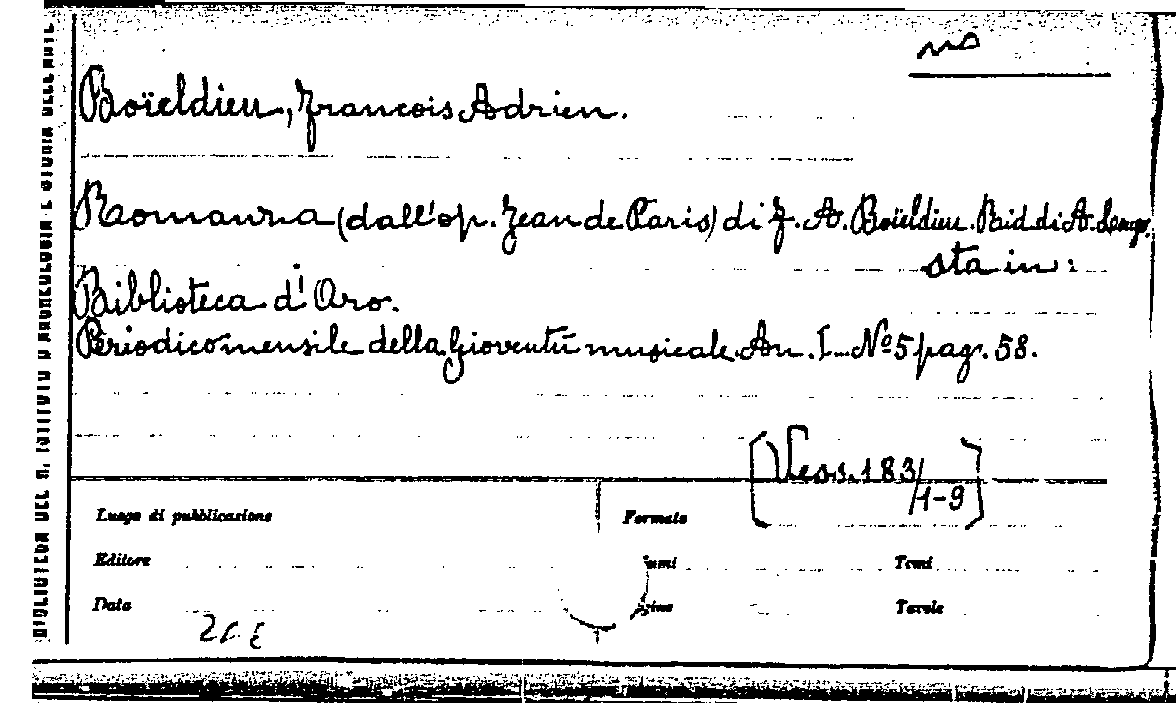 no
Boïeldieu, Francois Adrien.
Romanza (dall'op. Jean de Paris) di F. A. Boïeldieu. Rid. di A. Longo.
sta in:
Biblioteca d'Oro.
Periodico mensile della Gioventù musicale An. I Nº 5 pag. 58.
[Vess. 183/1-9]
Luogo di pubblicazione Formato
Editore Tomi
Data Tavole
BIBLIOTECA DEL R. ISTITUTO D'ARCHEOLOGIA E STORIA DELL'ARTE